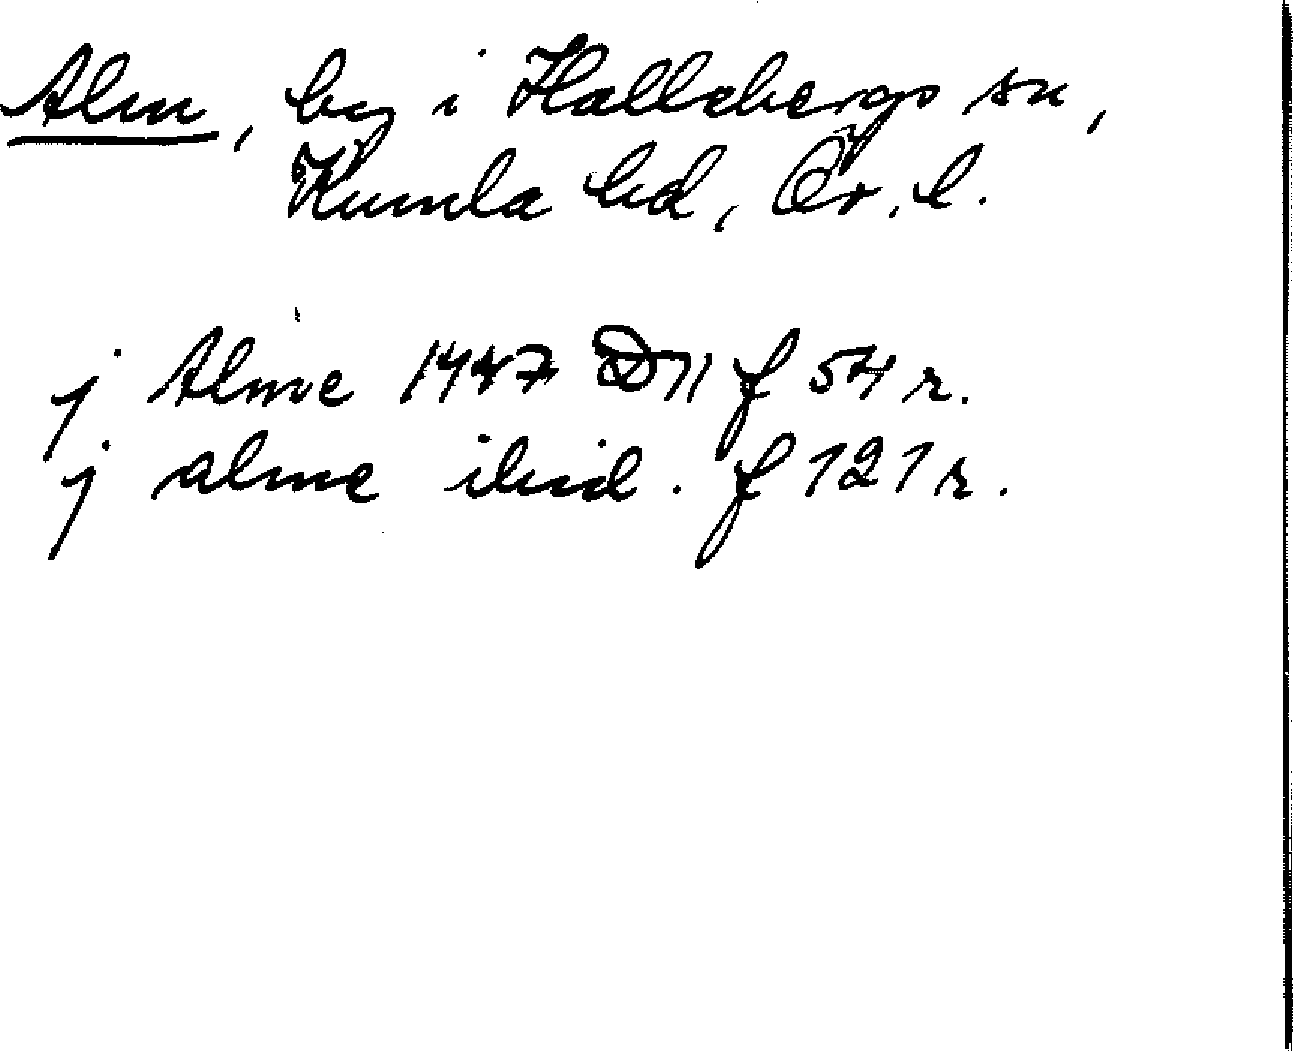 Alm, by i Hallsbergs sn,
Kumla hd, Ör. l.
j Alme 1447 D 11 f 54 r.
j alme ibid. f 121 r.